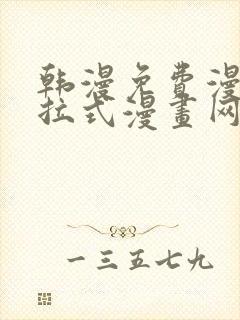 韩漫免费漫
拉式漫畫网
一三五七九